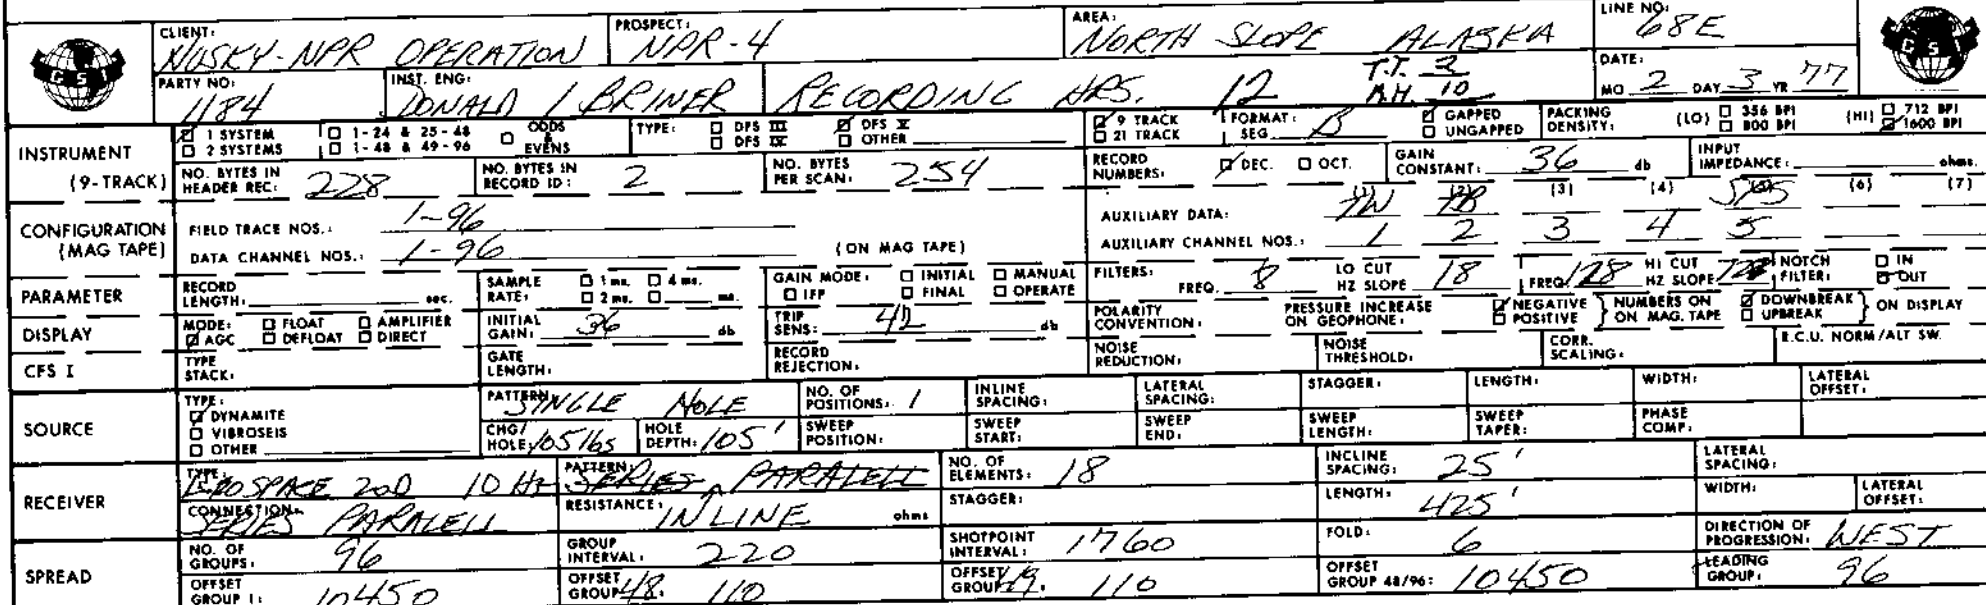 CLIENT: HUSKY-NPR OPERATION PROSPECT: NPR-4 AREA: NORTH SLOPE ALASKA LINE NO: 68E
GSI PARTY NO: 1184 INST. ENG: DONALD L BRINER RECORDING HRS. 12 T.T. 2 DATE: GSI
R.H. 10 MO 2 DAY 3 YR 77
INSTRUMENT (9-TRACK) ☑ 1 SYSTEM ☐ 1-24 & 25-48 ☐ ODDS & EVENS TYPE: ☐ DFS III ☑ DFS V ☑ 9 TRACK FORMAT: SEG B ☑ GAPPED PACKING DENSITY: (LO) ☐ 356 BPI (HI) ☐ 712 BPI
☐ 2 SYSTEMS ☐ 1-48 & 49-96 ☐ DFS IV ☐ OTHER ☐ 21 TRACK ☐ UNGAPPED ☐ 800 BPI ☑ 1600 BPI
NO. BYTES IN HEADER REC: 228 NO. BYTES IN RECORD ID: 2 NO. BYTES PER SCAN: 254 RECORD NUMBERS: ☑ DEC. ☐ OCT. GAIN CONSTANT: 36 db INPUT IMPEDANCE: ohms.
CONFIGURATION (MAG TAPE) FIELD TRACE NOS.: 1-96 AUXILIARY DATA: (1) TW (2) TB (3) (4) (5) SPS (6) (7)
DATA CHANNEL NOS.: 1-96 (ON MAG TAPE) AUXILIARY CHANNEL NOS.: 1 2 3 4 5
PARAMETER RECORD LENGTH: sec. SAMPLE RATE: ☐ 1 ms. ☐ 4 ms. ☐ 2 ms. ☐ ms. GAIN MODE: ☐ INITIAL ☐ MANUAL ☐ IFP ☐ FINAL ☐ OPERATE FILTERS: FREQ. 8 LO CUT HZ SLOPE 18 FREQ. 128 HI CUT HZ SLOPE NOTCH FILTER: ☐ IN ☑ OUT
DISPLAY MODE: ☐ FLOAT ☐ AMPLIFIER ☑ AGC ☐ DEFLOAT ☐ DIRECT INITIAL GAIN: 36 db TRIP SENS: 42 db POLARITY CONVENTION: PRESSURE INCREASE ON GEOPHONE: ☑ NEGATIVE ☐ POSITIVE } NUMBERS ON MAG. TAPE ☑ DOWNBREAK ☐ UPBREAK } ON DISPLAY
CFS I TYPE STACK: GATE LENGTH: RECORD REJECTION: NOISE REDUCTION: NOISE THRESHOLD: CORR. SCALING: R.C.U. NORM/ALT SW.
SOURCE TYPE: ☑ DYNAMITE ☐ VIBROSEIS ☐ OTHER PATTERN: SINGLE HOLE NO. OF POSITIONS: 1 INLINE SPACING: LATERAL SPACING: STAGGER: LENGTH: WIDTH: LATERAL OFFSET:
CHG/HOLE: 105 lbs HOLE DEPTH: 105' SWEEP POSITION: SWEEP START: SWEEP END: SWEEP LENGTH: SWEEP TAPER: PHASE COMP:
RECEIVER TYPE: 20D 10 Hz PATTERN: SERIES PARALELL NO. OF ELEMENTS: 18 INCLINE SPACING: 25' LATERAL SPACING:
CONNECTION: SERIES PARALELL RESISTANCE: INLINE ohms STAGGER: LENGTH: 425' WIDTH: LATERAL OFFSET:
SPREAD NO. OF GROUPS: 96 GROUP INTERVAL: 220 SHOTPOINT INTERVAL: 1760 FOLD: 6 DIRECTION OF PROGRESSION: WEST
OFFSET GROUP 1: 10450 OFFSET GROUP 48: 110 OFFSET GROUP 49: 110 OFFSET GROUP 48/96: 10450 LEADING GROUP: 96